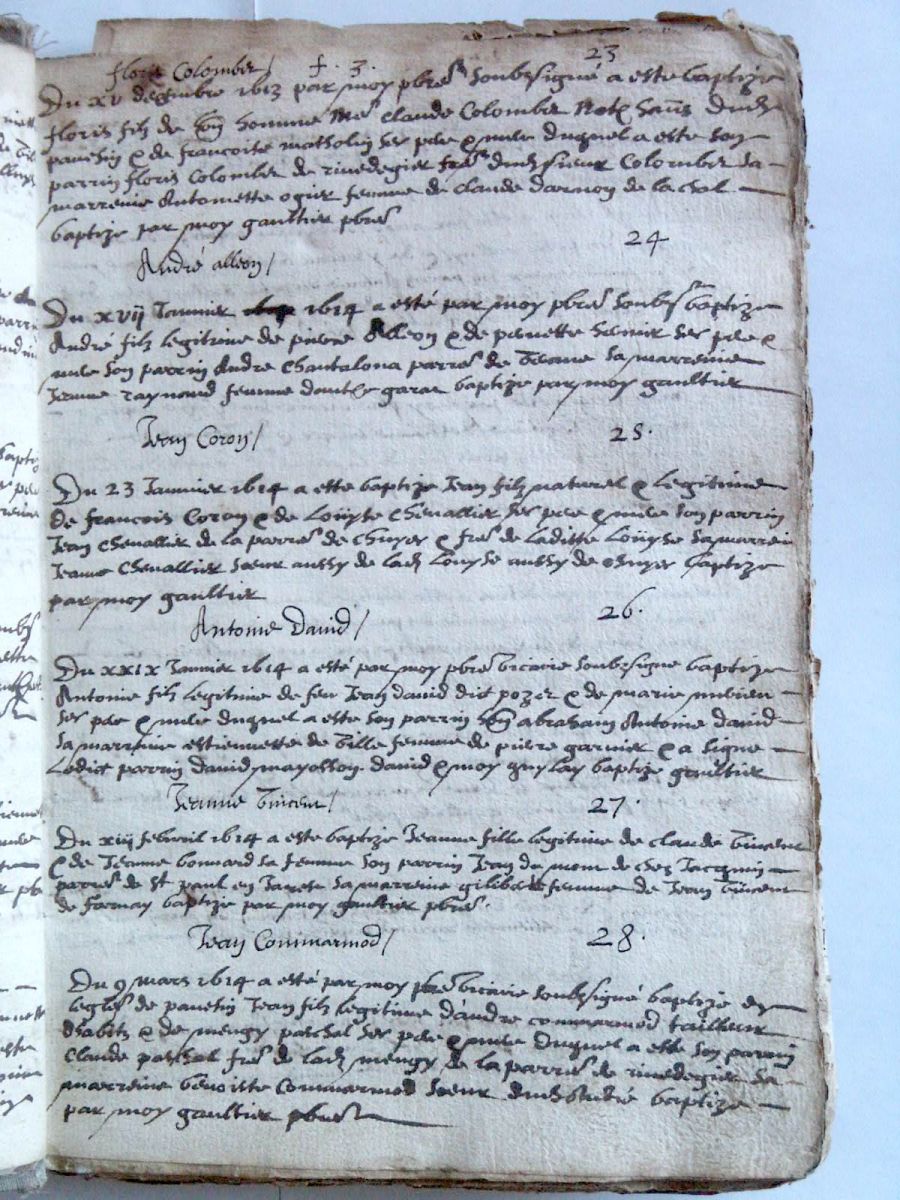 floris Colombet / f. 3. 23
Du xv decembre 1613 par moy pbre soubzsigné a este baptize
floris filz de homme Me Claude Colombet Not
pavesin & de francoise matholin ses pere & mere duquel a este son
parrin floris Colombet de rivedegier frere dud sieur Colombet sa
marreine Antoinette ogier femme de claude darnon de la
baptize par moy gaultier pbre
24
André alleon /
Du xvij Janvier 1614 a esté par moy pbre soubz baptize
André filz legitime de pierre Alleon & de pernette ses pere &
mere son parrin Andre Chantalona parre de sa marreine
Jeanne raynaud femme baptize par moy gaultier
Jean Coron / 25.
Du 23 Janvier 1614 a este baptize Jean filz naturel & legitime
de francois Coron & de Löuyse Chevallier ses pere & mere son parrin
Jean Chevallier de la parre de chuyes & frere de laditte Löuyse sa marrein
Jeanne Chevallier sœur aussy de lad Louyse aussy de chuyes baptize
par moy gaultier
26.
Antoine David /
Du xxix Janvier 1614 a esté par moy pbre vicaire soubzsigne baptize
Antoine filz legitime de feu Jean david dit pozet & de marie
ses pere & mere duquel a este son parrin abraham Antoine david
sa marreine estiennette de Ville femme de pierre garnier & a signe
Ledict parrin david mayosson. david & moy quy lay baptize gaultier
Jeanne Vincent / 27.
Du xiij febvril 1614 a este baptize Jeanne fille legitime de claude Vincent
& de Jeanne bonnard sa femme son parrin Jean du mont de chez Jacqmin
parre de st paul en Jarest sa marreine femme de Jean Vincent
de fornay baptize par moy gaultier pbre.
Jean Commarmod / 28.
Du 9 mars 1614 a esté par moy pbre vicaire soubzsigné baptize en
leglise de pavesin Jean filz legitime dandre commarmod tailleur
dhabitz & de mengy paschal ses pere & mere duquel a este son parrin
Claude paschal frere de lad mengy de la parre de rivedegier sa
marreine benoiste Commarmod sœur dud André baptize
par moy gaultier pbre